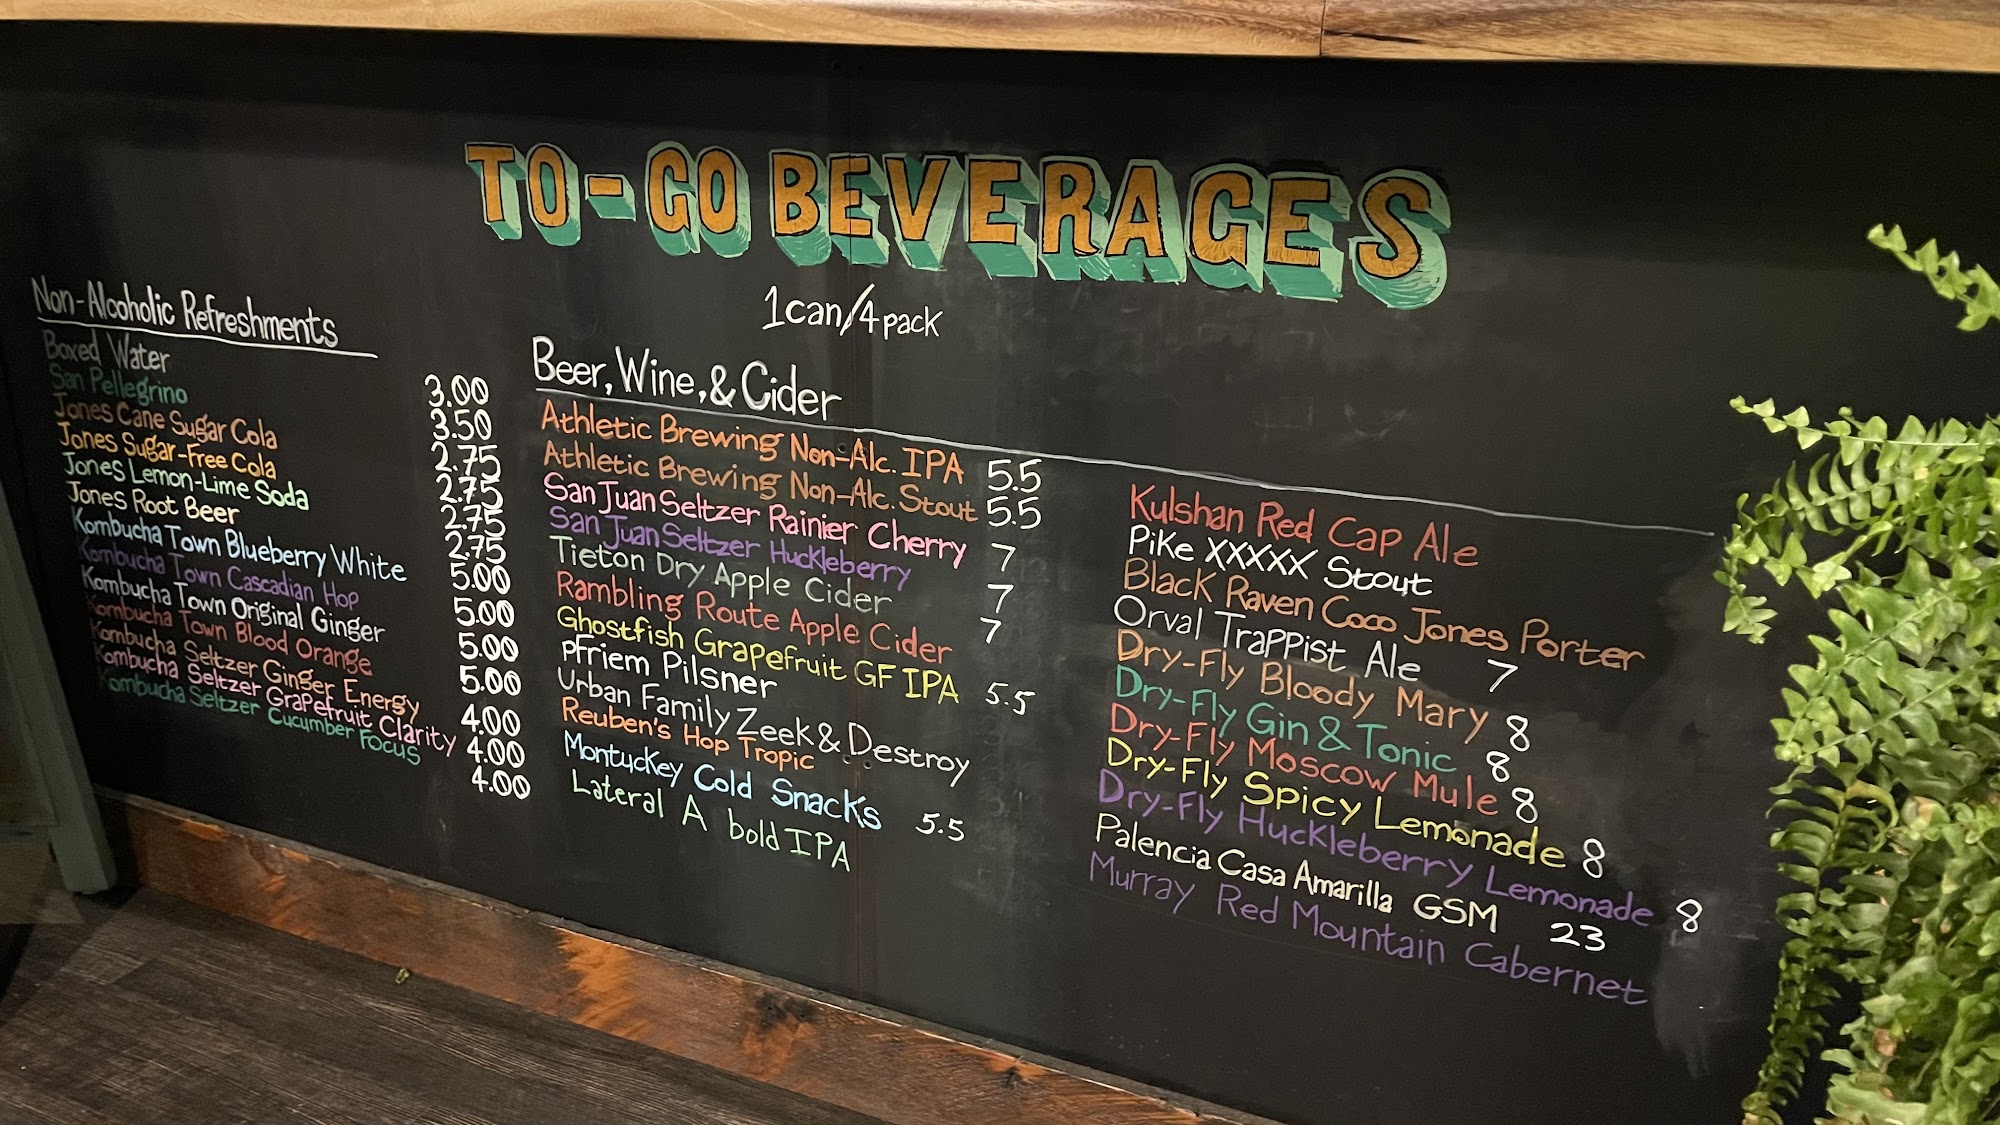 TO-GO BEVERAGES
1 can/4 pack
Non-Alcoholic Refreshments
Boxed Water 3.00
San Pellegrino 3.50
Jones Cane Sugar Cola 2.75
Jones Sugar-Free Cola 2.75
Jones Lemon-Lime Soda 2.75
Jones Root Beer 2.75
Kombucha Town Blueberry White 5.00
Kombucha Town Cascadian Hop 5.00
Kombucha Town Original Ginger 5.00
Kombucha Town Blood Orange 5.00
Kombucha Seltzer Ginger Energy 4.00
Kombucha Seltzer Grapefruit Clarity 4.00
Kombucha Seltzer Cucumber Focus 4.00
Beer, Wine, & Cider
Athletic Brewing Non-Alc. IPA 5.5
Athletic Brewing Non-Alc. Stout 5.5
San Juan Seltzer Rainier Cherry 7
San Juan Seltzer Huckleberry 7
Tieton Dry Apple Cider 7
Rambling Route Apple Cider
Ghostfish Grapefruit GF IPA 5.5
pFriem Pilsner
Urban Family Zeek & Destroy
Reuben's Hop Tropic
Montucky Cold Snacks 5.5
Lateral A bold IPA
Kulshan Red Cap Ale
Pike XXXXX Stout
Black Raven Coco Jones Porter
Orval Trappist Ale 7
Dry-Fly Bloody Mary 8
Dry-Fly Gin & Tonic 8
Dry-Fly Moscow Mule 8
Dry-Fly Spicy Lemonade 8
Dry-Fly Huckleberry Lemonade 8
Palencia Casa Amarilla GSM 23
Murray Red Mountain Cabernet